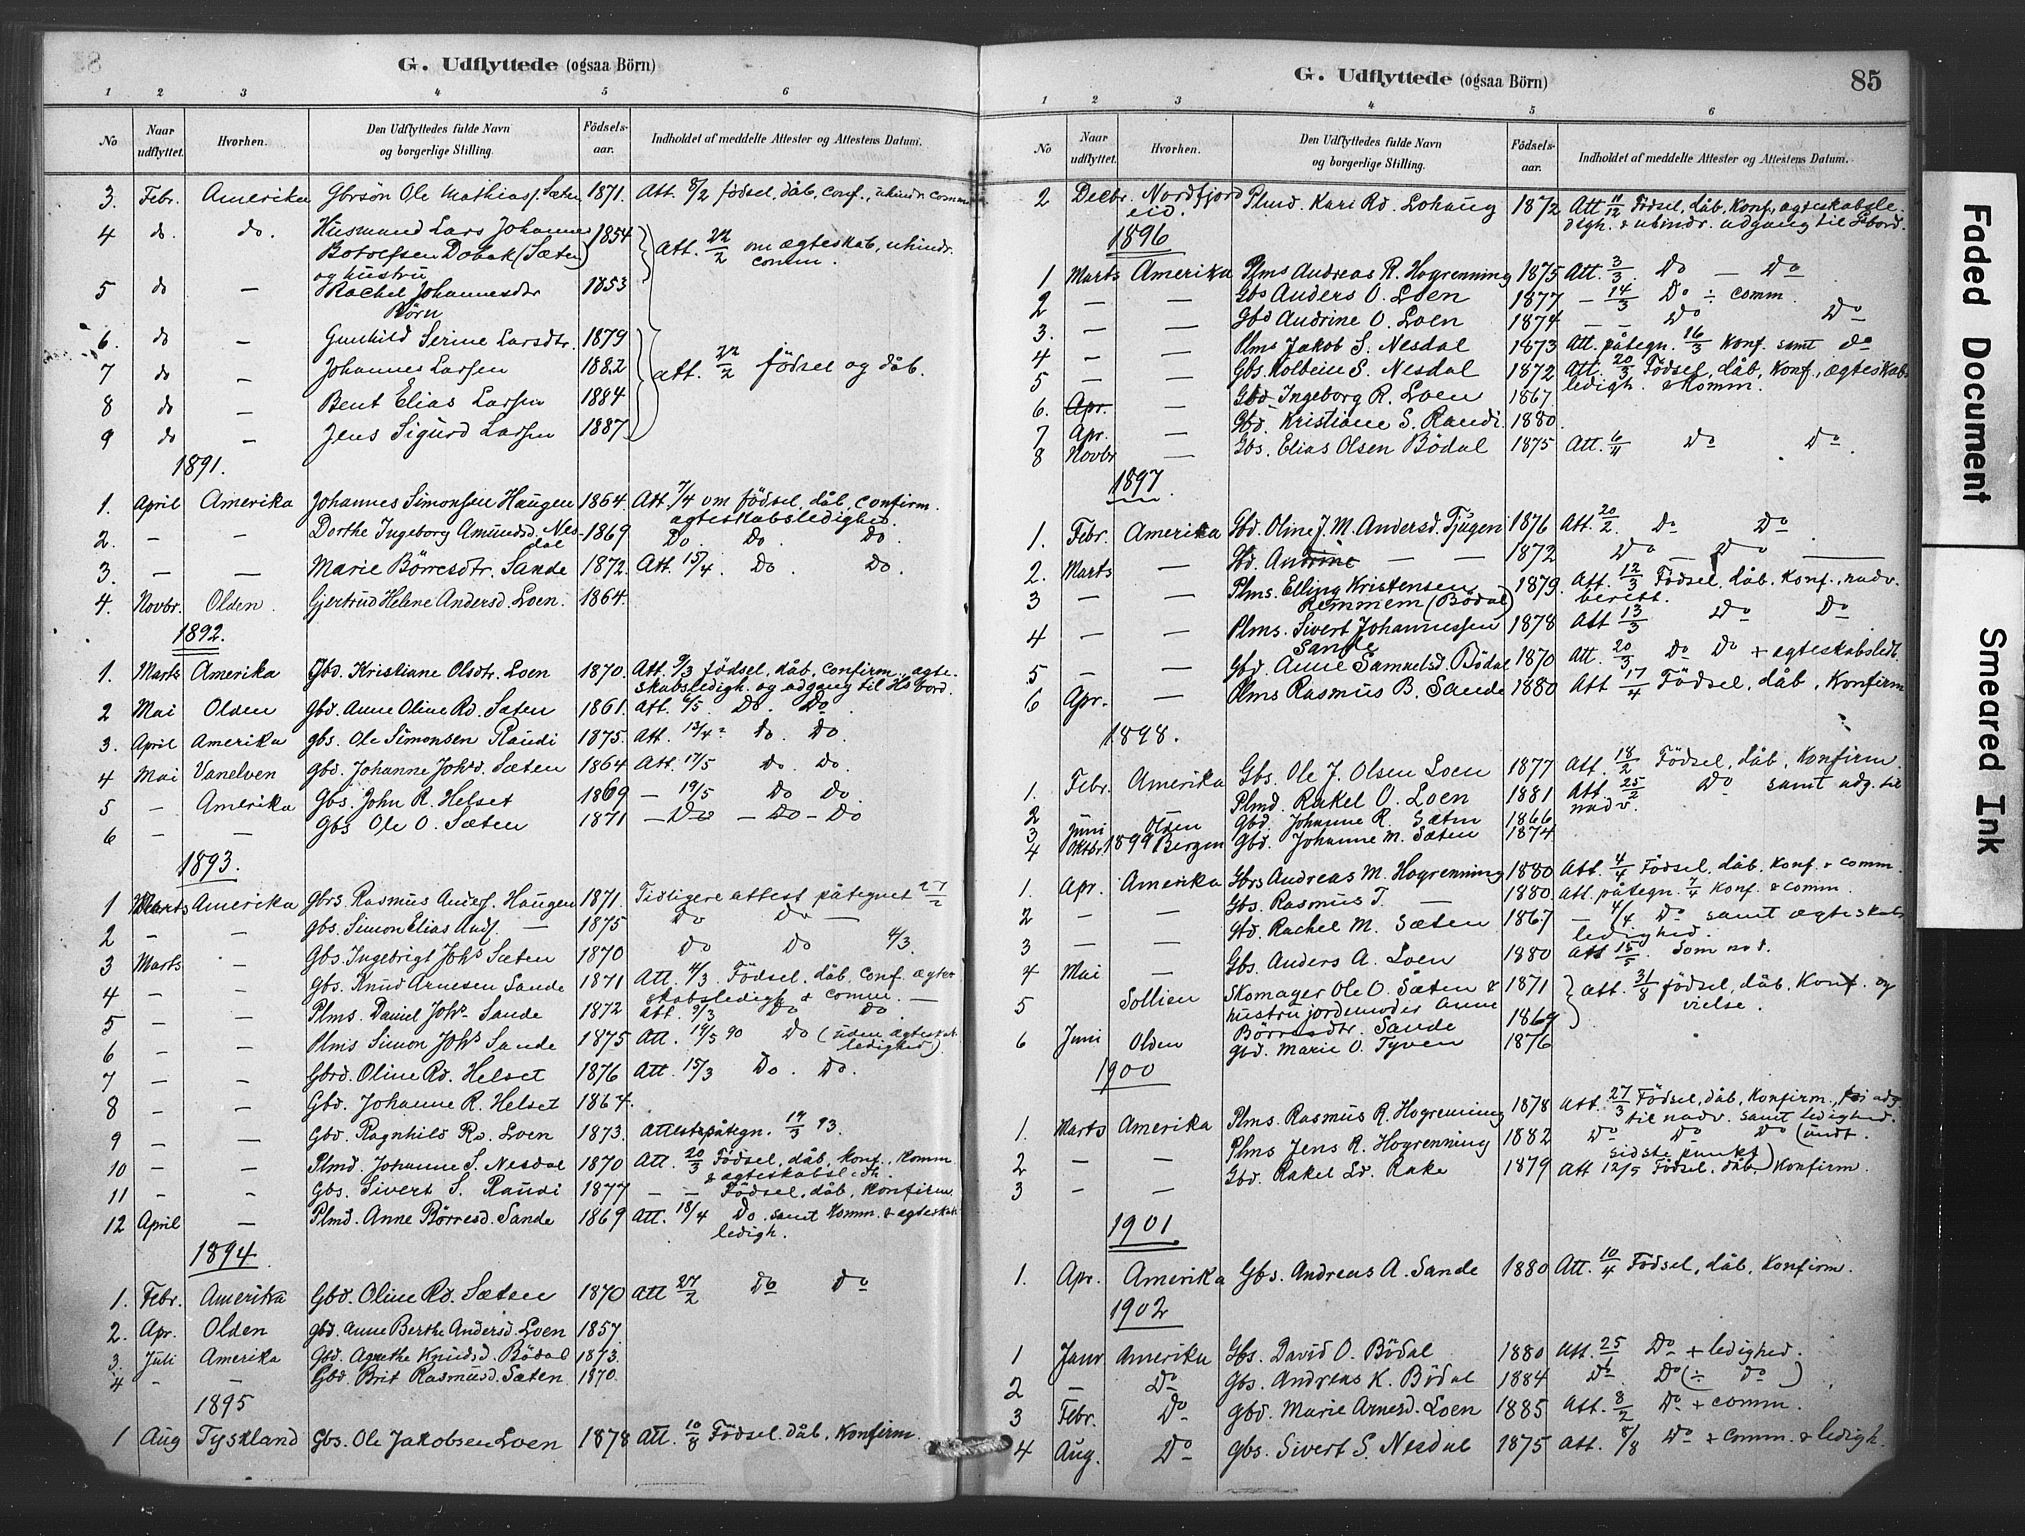 G. Udflyttede (ogsaa Börn)
1 2 3 4 5 6
No | Naar udflyttet. | Hvorhen. | Den Udflyttedes fulde Navn og borgerlige Stilling. | Födsels-aar. | Indholdet af meddelte Attester og Attestens Datum.
3. Febr. Amerika Gbrsön Ole Mathias. Sæten 1871. Att. 8/2 födsel, dåb, conf., uhindr comm
4 do. do. Husmand Lars Johannes 1854 Att. 22/2 om ægteskab, uhindr.
Botolfsen Dobak (Sæten) comm.
og hustru
5 do — Rachel Johannesdtr 1853
Börn
6. do — Gunhild Serine Larsdtr. 1879
7 do — Johannes Larsen 1882 att. 22/2 födsel og dåb.
8 do — Bent Elias Larsen 1884
9 do — Jens Sigurd Larsen 1887
1891.
1. April Amerika Johannes Simonsen Haugen 1864 Att. 7/4 om födsel, dåb, confirm.
agteskabsledighed.
2. — — Dorthe Ingeborg Amundsd. Nes- 1869 Do. Do. Do.
dal
3. — — Marie Börresdtr. Sande 1872. Att. 15/4. Do. Do.
4. Novbr. Olden. Gjertrud Helene Andersd. Loen. 1864.
1892.
1. Marts Amerika Gbd. Kristiane Olsdtr. Loen 1870. Att. 9/3 födsel, dåb, confirm., agte-
skabsledigh. og adgang til Hs bord.
2 Mai Olden Gbd. Anne Oline Rd. Sæten 1861. Att. 6/5. Do. Do.
3. April Amerika gbs. Ole Simonsen Raudi 1875. Att. 13/4 do. Do.
4 Mai Vanelven gbd. Johanne Johsd. Sæten 1864 Att. 17/5 Do. Do.
5 — Amerika Gbs. John R. Helset 1869 — 19/5 Do Do.
6 — — Gbs Ole O. Sæten 1871 — Do — Do — Do
1893.
1 Marts Amerika Gbrs. Rasmus Andrs. Haugen 1871. Tidligere attest påtegnet 27/2
2 — — gbs. Simon Elias Ands. — 1875 Do Do —
3 Marts — Gbs. Ingebrigt Johs Sæten 1870 Do Do 4/3.
4 — — Gbs. Knud Arnesen Sande 1871 Att. 4/3 Födsel, dåb, conf. agte-
skabsledigh & comm. —
5 — — Plms. Daniel Johs. Sande 1872 Att. 9/3 Do Do
6 — — Plms Simon Johs Sande 1875 Att. 14/5 90 Do (uden agteskab.
ledighed).
7 — — Gbrd. Oline Rd. Helset 1876 Att. 15/3 Do. Do.
8 — — Gbd. Johanne R. Helset 1864.
9 — — Gbd. Ragnhild Rd. Loen 1873. Attestpåtegn. 19/3 93.
10 — — Plmd. Johanne S. Nesdal 1870 Att. 20/3 Födsel, dåb, konf., komm
& agteskabsl.dh.
11 — — Gbs. Sivert S. Raudi 1877 — — Födsel, dåb, konfirm.
12 April — Plmd. Anne Börresd. Sande 1869 Att. 18/4 Do. samt komm. & agteskab
ledigh.
1894.
1. Febr. Amerika Gbd. Oline Rd. Sæten 1870 Att 27/2 Do Do
2. Apr. Olden gbd. Anne Berthe Andersd. Loen 1857.
3. Juli Amerika Gbd. Agnethe Knudsd. Bödal 1873.
4 — — Gbd. Brit Rasmusd. Sæten 1870.
1895
1 Aug Tyskland Gbs. Ole Jakobsen Loen 1878 Att. 10/8 Födsel, dåb, Konfirm.
G. Udflyttede (ogsaa Börn) 85
1 2 3 4 5 6
No | Naar udflyttet. | Hvorhen. | Den Udflyttedes fulde Navn og borgerlige Stilling. | Födsels-aar. | Indholdet af meddelte Attester og Attestens Datum.
2 Decbr. Nordfjord Plmd. Kari Rd. Lohaug 1872 Att 11/12 Födsel, dåb, Konf., agteskabsle-
eid. digh. & uhindr. adgang til H. bord.
1896
1 Marts Amerika Plms Andreas R. Hogrenning 1875 Att. 3/3. Do — Do
2 — — Gbs Anders O. Loen 1877 — 14/3 Do ÷ comm.
3. — — Gbd Andrine O. Loen 1874 — — Do Do
4 — — Plms Jakob S. Nesdal 1873 Att. påtegn. 16/3 Konf. samt do
5 — — Gbs. Kolbein S. Nesdal 1872 Att. 20/3 Födsel, dåb, Konf., ægteskabs
ledigh. & Komm.
6. Apr. — Gbd. Ingeborg R. Loen 1867.
7 Apr. — Gbd. Kristiane S. Raudi. 1880.
8 Novbr — Gbs. Elias Olsen Bödal 1875 Att. 6/11 Do Do
1897.
1. Febr. Amerika Gbd. Oline J. M. Andersd. Tjugen 1876 Att. 20/2 Do Do
2. Marts — Gbd. Andrine — — 1872 Do — Do —
3 — — Plms. Elling Kristensen 1879. Att. 12/3 Födsel, dåb. Konf., nadv.
Remmem (Bödal) berett.
4 — — Plms. Sivert Johannessen 1878 Att 13/3 Do Do
Sande
5 — — Gbd. Anne Samuelsd. Bödal 1870 Att. 20/3 Do Do + agteskabsledt.
6 Apr. — Plms Rasmus B. Sande 1880 Att 17/4 Födsel, dåb, Konfirm
1898.
1. Febr. Amerika Gbs. Ole J. Olsen Loen 1877 Att. 18/2 Födsel, dåb, Konfirm.
2 — Plmd. Rakel O. Loen 1881 Att 25/2 Do samt adg. til
nadv.
3 Juni Olden Gbd. Johanne R. Sæten 1866
4 Oktbr. Bergen Gbd. Johanne M. Sæten 1874
1899
1. Apr. Amerika Gbrs Andreas M. Hogrenning 1880 Att. 4/4 Födsel, dåb, Konf. & comm.
2 — — Gbs. Rasmus T. — 1880. Att. påtegn. 7/4 Konf. & comm.
3 — — Gbd. Rachel M. Sæten 1867 — 4/4 Do samt ægteskabs
ledighed.
4 Mai — Gbs. Anders A. Loen 1880 Att 15/5 Som no 1.
5 Sollien Skomager Ole O. Sæten & 1871 att. 31/8 födsel, dåb, Konf. og
hustru jordemoder Anne vielse.
Börresdtr. Sande 1869
6 Juni Olden Gbd. Marie O. Tyven 1876
1900
1. Marts Amerika Plms. Rasmus R. Hogrenning 1878 Att. 27/3 Födsel, dåb, Konfirm., adg
til nadv. samt ledighed.
2 — — Plms Jens R. Hogrenning 1882 Do Do Do (undt.
sidste punkt)
3 — — Gbd. Rakel Ld. Rake 1879 Att 12/5 Födsel, dåb, Konfirm.
1901.
1. Apr. Amerika Gbs. Andreas A. Sande 1880 Att. 10/4 Födsel, dåb, Konfirm.
1902
1 Janr Amerika Gbs. David O. Bödal 1880 Att. 25/1 Do + ledighed.
2 — Do Gbs. Andreas K. Bödal 1884 Do Do (÷ do)
3 Febr. Do gbd. Marie Arnesd. Loen 1885 Att. 8/2 Do + comm.
4 Aug. Do gbs. Sivert S. Nesdal 1875 Att. 8/8 Do & comm. & ledigh.
Faded Document
Smeared Ink